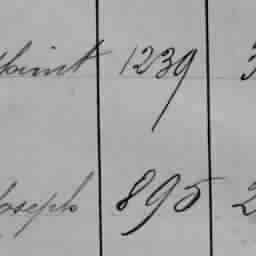 point 1239 3
Joseph 895 2